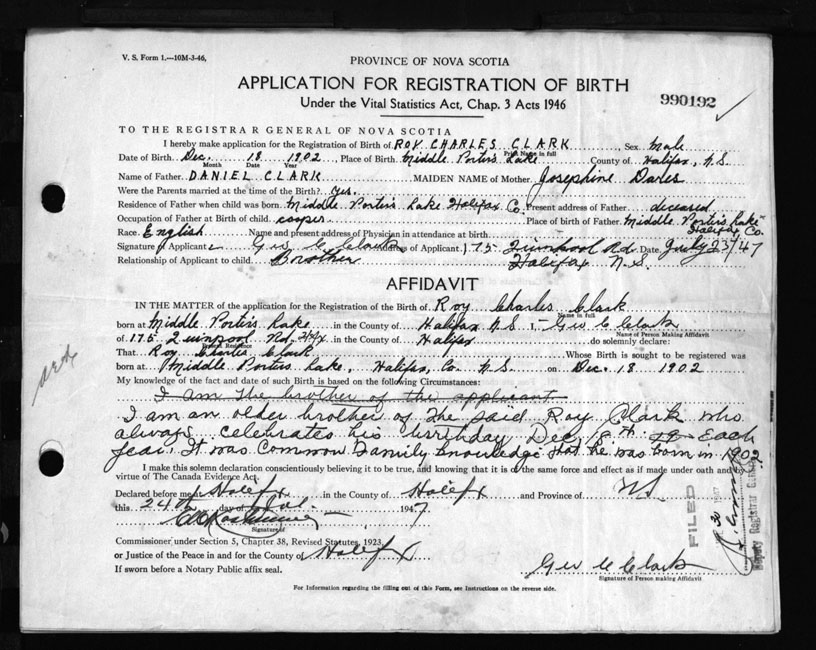 V. S. Form 1.—10M-3-46,
PROVINCE OF NOVA SCOTIA
APPLICATION FOR REGISTRATION OF BIRTH
Under the Vital Statistics Act, Chap. 3 Acts 1946
990192
TO THE REGISTRAR GENERAL OF NOVA SCOTIA
I hereby make application for the Registration of Birth of ROY CHARLES CLARK, Sex Male
Print Name in full
Date of Birth Dec. 18 1902, Place of Birth Middle Porters Lake County of Halifax, N.S.
Month Day Year
Name of Father DANIEL CLARK MAIDEN NAME of Mother Josephine
Were the Parents married at the time of the Birth? Yes.
Residence of Father when child was born Middle Porters Lake Halifax Co. Present address of Father deceased
Occupation of Father at Birth of child cooper Place of birth of Father Middle Porters Lake Halifax Co.
Race English Name and present address of Physician in attendance at birth
Signature of Applicant Geo C Clark Address of Applicant 175 Quinpool Rd. Date July 23/47
Relationship of Applicant to child Brother Halifax N.S.
AFFIDAVIT
IN THE MATTER of the application for the Registration of the Birth of Roy Charles Clark
Name in full
born at Middle Porters Lake in the County of Halifax N.S. I, Geo C Clark
Name of Person Making Affidavit
of 175 Quinpool Rd. Hfx in the County of Halifax do solemnly declare:
Present Residence
That Roy Charles Clark Whose Birth is sought to be registered was
born at Middle Porters Lake, Halifax, Co. N.S. on Dec. 18 1902
My knowledge of the fact and date of such Birth is based on the following Circumstances:
I am the brother of the applicant
I am an older brother of the said Roy Clark who
always celebrates his birthday Dec 18th Each
Year. It was Common Family Knowledge that he was born in 1902
I make this solemn declaration conscientiously believing it to be true, and knowing that it is of the same force and effect as if made under oath and by
virtue of The Canada Evidence Act.
Declared before me at Halifx in the County of Halifx and Province of NS
this 24th day of 1947
Signature of
Commissioner under Section 5, Chapter 38, Revised Statutes, 1923,
or Justice of the Peace in and for the County of Halifx
If sworn before a Notary Public affix seal.
Geo C Clark
Signature of Person making Affidavit
FILED
Deputy Registrar General
For Information regarding the filling out of this Form, see Instructions on the reverse side.